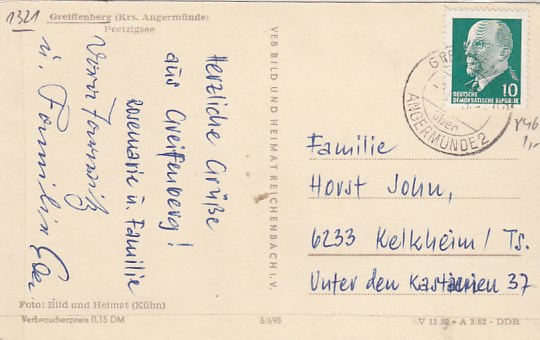 1321
Greiffenberg (Krs. Angermünde)
Peetzigsee
Herzliche Grüße
aus Greifenberg!
Rosemarie u. Familie
u. Familie
Foto: Bild und Heimat (Kühn)
Verbraucherpreis 0,15 DM
VEB BILD UND HEIMAT REICHENBACH I. V.
5/698
10
DEUTSCHE
DEMOKRATISCHE REPUBLIK
über
ANGERMÜNDE 2
Familie
Horst John,
6233 Kelkheim/Ts.
Unter den Kastanien 37
A 3/62 - DDR